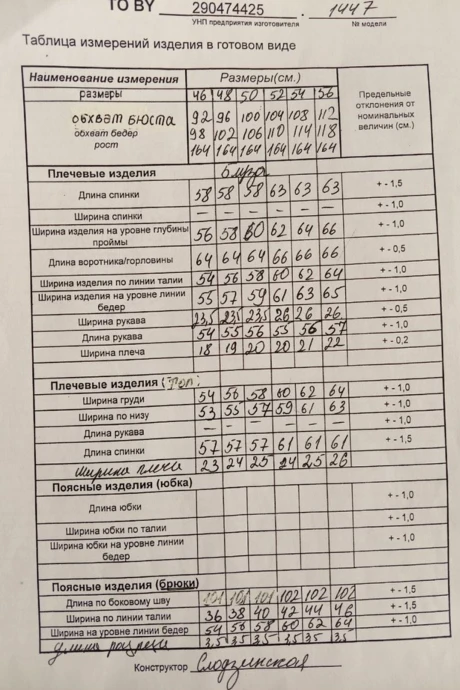 ТО BY 290474425 . 1447
УНП предприятия изготовителя № модели
Таблица измерений изделия в готовом виде
Наименование измерения Размеры(см.) Предельные отклонения от номинальных величин (см.)
размеры 46 48 50 52 54 56
обхват бюста 92 96 100 104 108 112
обхват бедер 98 102 106 110 114 118
рост 164 164 164 164 164 164
Плечевые изделия блуза
Длина спинки 58 58 58 63 63 63 + - 1,5
Ширина спинки — — — — — — + - 1,0
Ширина изделия на уровне глубины проймы 56 58 60 62 64 66 + - 1,0
Длина воротника/горловины 64 64 64 66 66 66 + - 0,5
Ширина изделия по линии талии 54 56 58 60 62 64 + - 1,0
Ширина изделия на уровне линии бедер 55 57 59 61 63 65 + - 1,0
Ширина рукава 23,5 23,5 23,5 26 26 26 + - 0,5
Длина рукава 54 55 56 55 56 57 + - 1,0
Ширина плеча 18 19 20 20 21 22 + - 0,2
Плечевые изделия (Топ)
Ширина груди 54 56 58 60 62 64 + - 1,0
Ширина по низу 53 55 57 59 61 63 + - 1,0
Длина рукава — — — — — —
Длина спинки 57 57 57 61 61 61 + - 1,5
Ширина плеча 23 24 25 24 25 26
Поясные изделия (юбка)
Длина юбки + - 1,0
Ширина юбки по талии + - 1,0
Ширина юбки на уровне линии бедер + - 1,0
Поясные изделия (брюки)
Длина по боковому шву 101 101 101 102 102 102 + - 1,5
Ширина по линии талии 36 38 40 42 44 46 + - 1,5
Ширина на уровне линии бедер 54 56 58 60 62 64 + - 1,0
Длина разреза 35 35 35 35 35 35
Конструктор Слодзинская